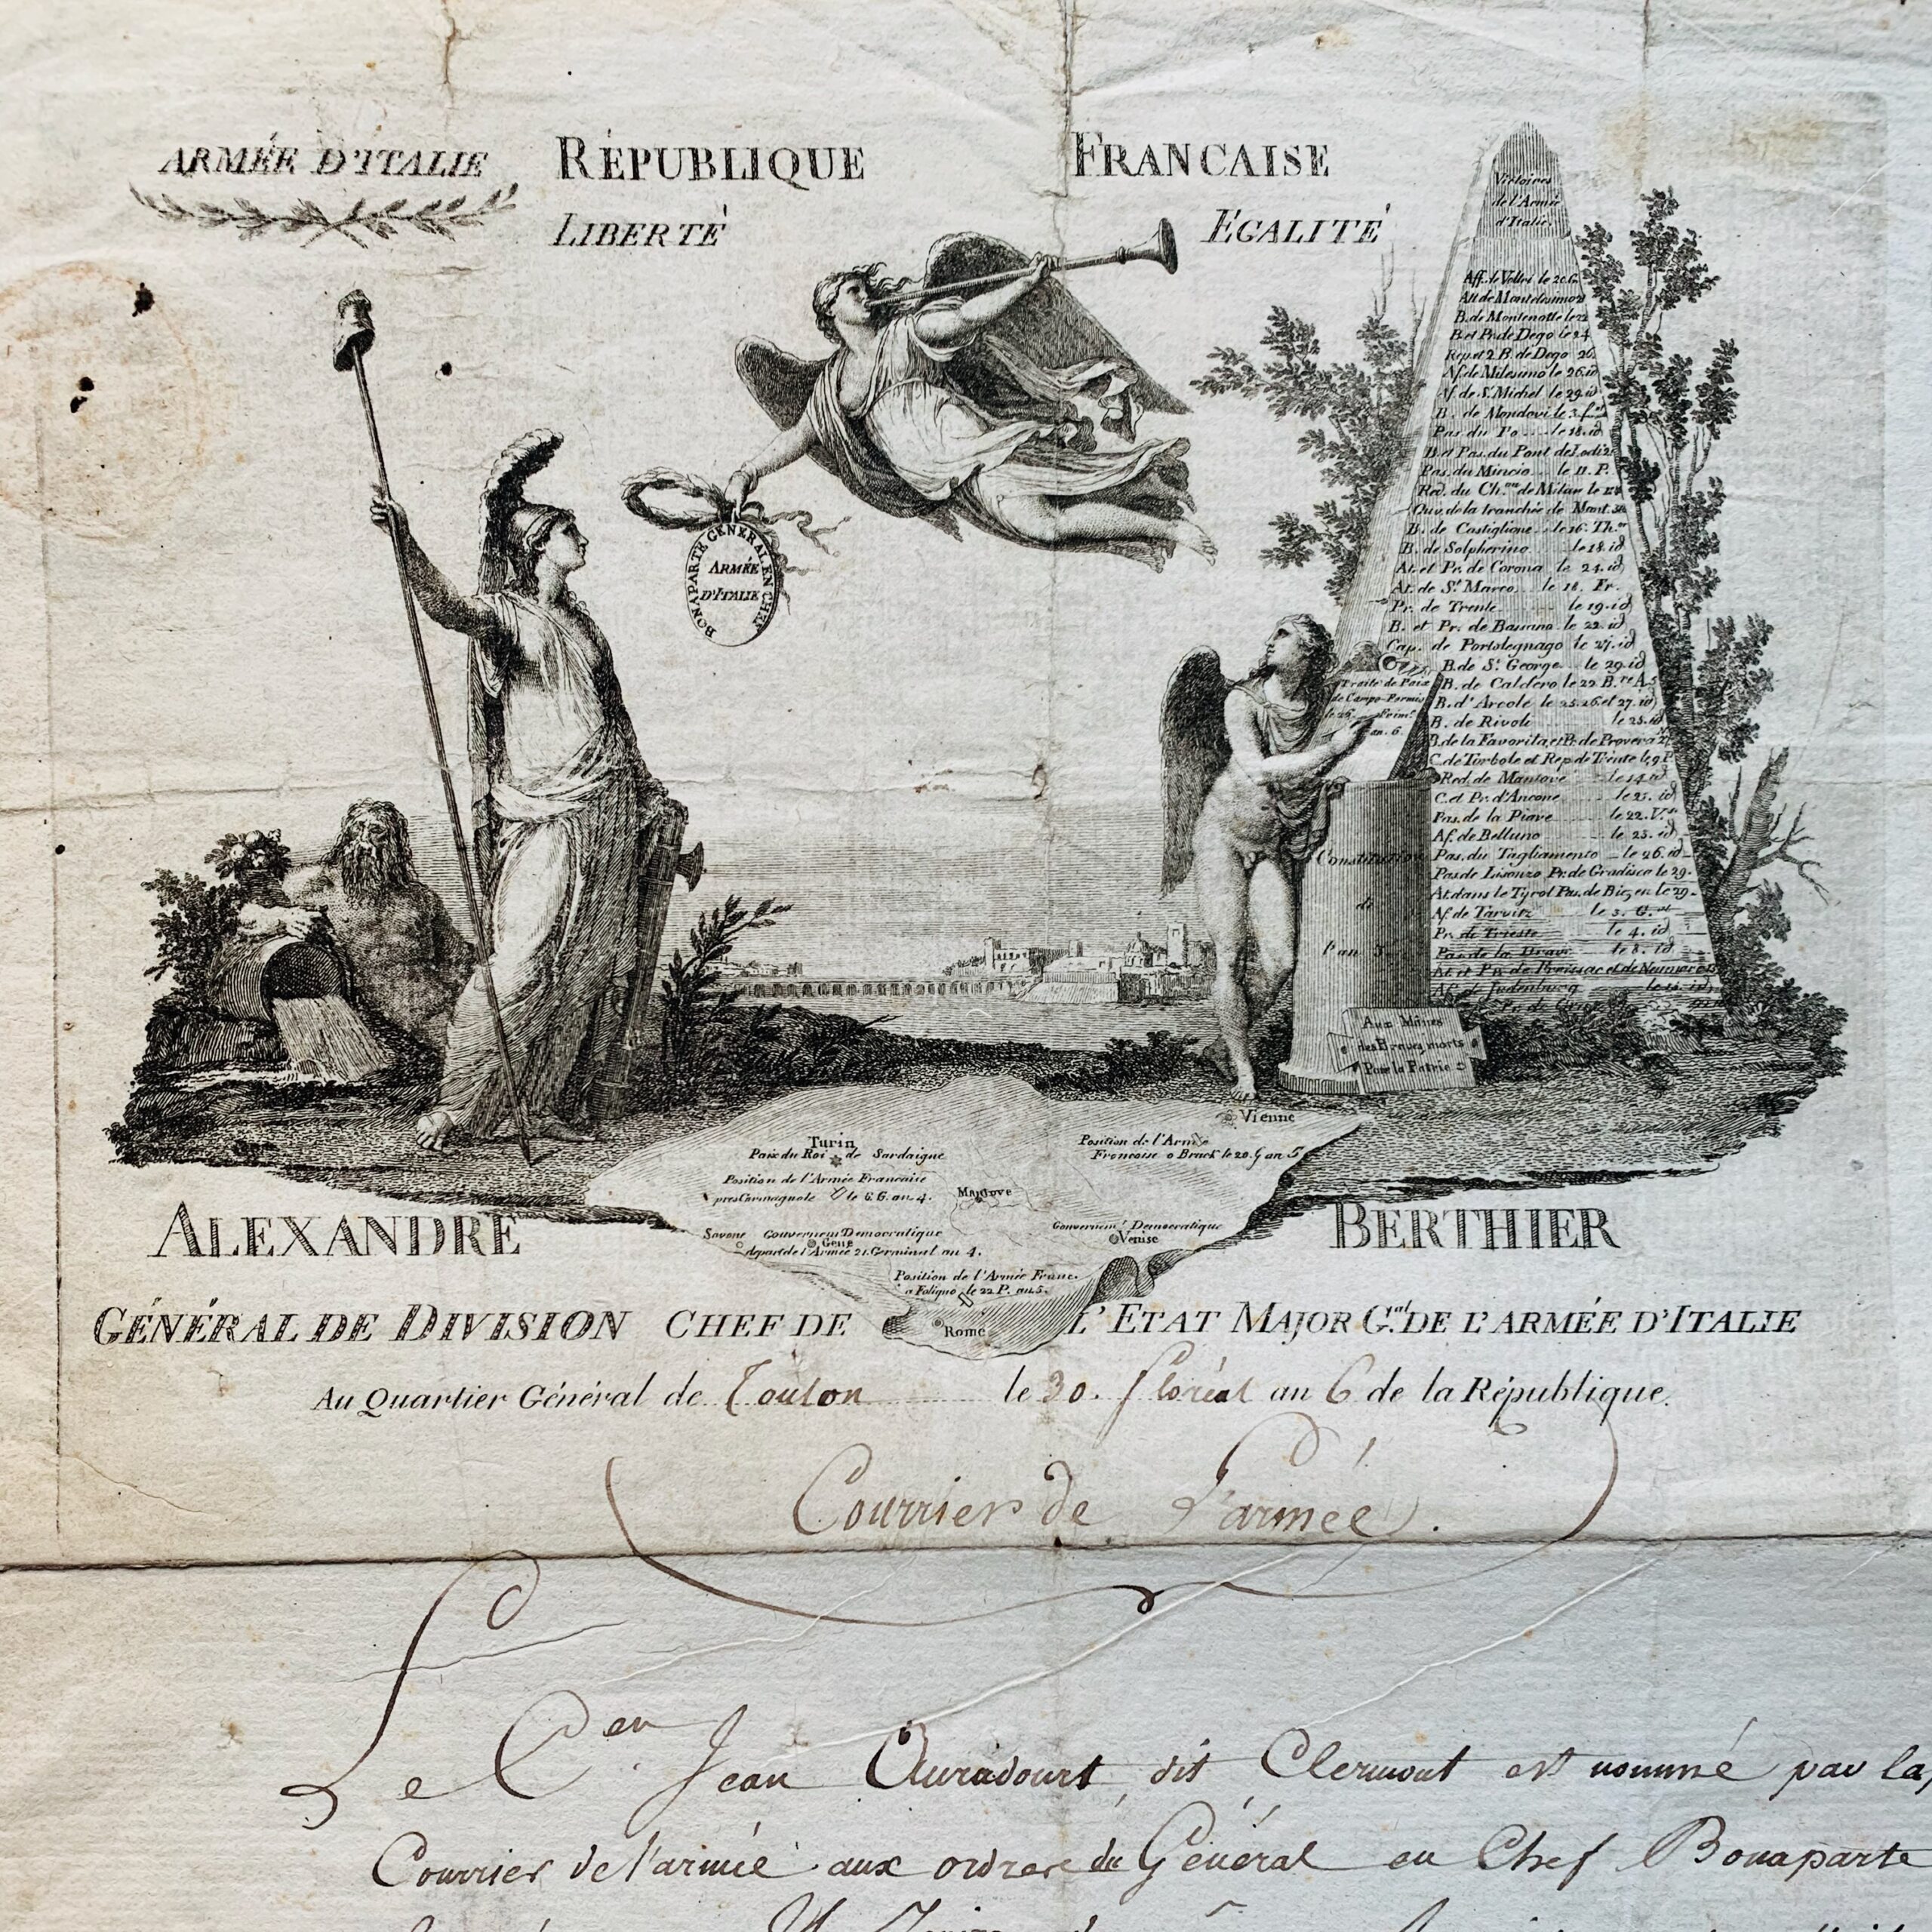 ARMÉE D'ITALIE RÉPUBLIQUE FRANCAISE
LIBERTÉ EGALITÉ
Victoires
de l'Armée
d'Italie.
Aff. de Voltri le 20 G.
Att de Montelesimo
B. de Montenotte le 22
B. et Pr. de Dego le 24
Rep. et 2. B. de Dego 26.
Af. de Milesimo le 26. id
Af. de St. Michel le 29. id
B. de Mondovi le 3. f
Pas. du Po le 18. id
B. et Pas. du Pont de Lodi
Pas. du Mincio le 11. P.
Red. du Ch.au de Milan le
Ouv. de la tranchée de Mant.
B. de Castiglione le 16. Th.or
B. de Solpherino le 18. id
At. et Pr. de Corona le 24. id
At. de St. Marco le 18. Fr.
Pr. de Trente le 19. id
B. et Pr. de Bassano le 22. id
Cap. de Portolegnago le 27. id
B. de St. George le 29. id
B. de Caldero le 22. B.re A. 5
B. d'Arcole le 25. 26. et 27. id
B. de Rivoli le 25. id
B. de la Favorita, et Pr. de Provera
C. de Torbole et Rep. de Trente le 9. P
Red. de Mantoue le 14. id
C. et Pr. d'Ancone le 21. id
Pas. de la Piave le 22. V.se
Af. de Belluno le 23. id
Pas. du Tagliamento le 26. id
Pas. de Lisonzo Pr. de Gradisca le 29.
At. dans le Tyrol Pas. de Bozen le 29.
Af. de Tarvitz le 3. G.al
Pr. de Trieste le 4. id
Pas. de la Drave le 8. id
Af. de Judenburg le
BONAPARTE GENERAL EN CHEF
ARMÉE
D'ITALIE
Traité de Paix
de Campo-Formio
le 26. Vrim.
an. 6.
Constitution
de
l'an 3.
Aux Mânes
des Braves morts
Pour la Patrie
Vienne
Turin
Paix du Roi de Sardaigne
Position de l'Armée
Francoise a Bruck le 20. G an 5
Position de l'Armée Francaise
pres Carmagnole le 6. G. an 4.
Mantove
Savone Gouvernem.t Democratique
Gene
depart de l'Armée 21. Germinal an 4.
Gouvernem.t Democratique
Venise
Position de l'Armée Franc.
a Foligno le 22 P. an 5.
Rome
ALEXANDRE BERTHIER
GÉNÉRAL DE DIVISION CHEF DE L'ETAT MAJOR G.al DE L'ARMÉE D'ITALIE
Au Quartier Général de Toulon le 30. floréal an 6 de la République.
Courrier de L'armée.
Le C.en Jean Ouradourt dit Clermont est nommé par la
Courrier de l'armée aux ordres du Général en Chef Bonaparte